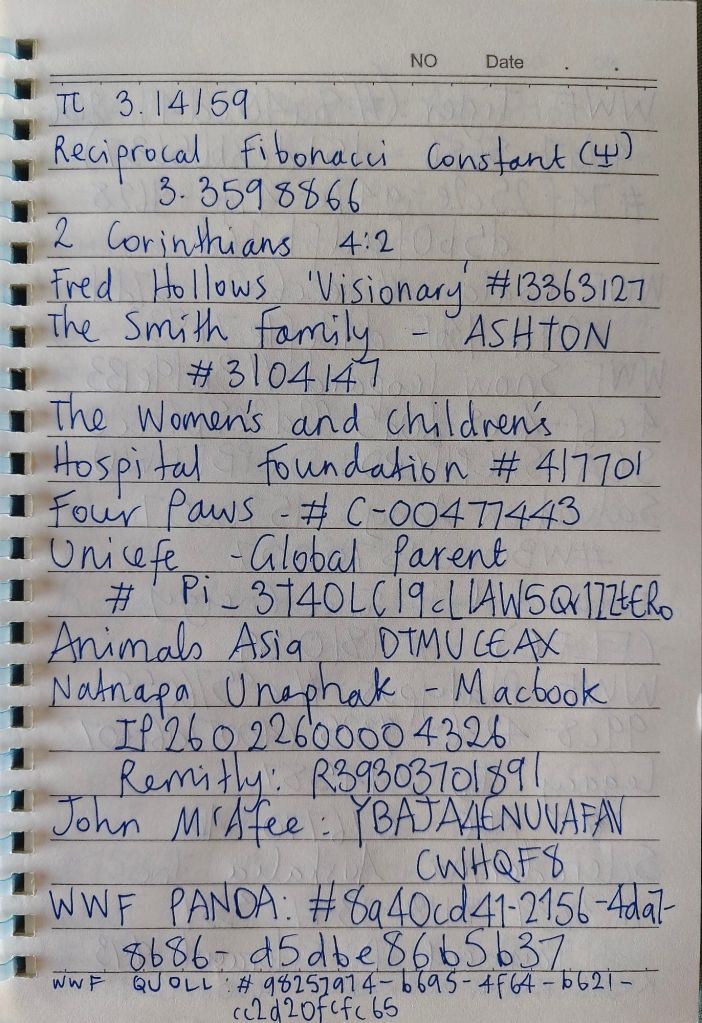 NO Date . .
π 3.14159
Reciprocal Fibonacci Constant (Ψ)
3.3598866
2 Corinthians 4:2
Fred Hollows 'Visionary' #13363127
The Smith Family - ASHTON
#3104147
The Women's and Children's
Hospital Foundation # 417701
Four Paws - # C-00477443
Unicefe - Global Parent
# Pi_3T40LC19cLIAW5Qr1ZZtERo
Animals Asia DTMUCEAX
Natnapa Unaphak - Macbook
IP260226000004326
Remitly: R39303701891
John McAfee: YBAJA4ENUVAFAV
CWHQF8
WWF PANDA: #8a40cd41-2156-4da7-
8b86-d5dbe86b5b37
WWF QUOLL: #98257974-b695-4f64-b621-
cc2d20fcfc65